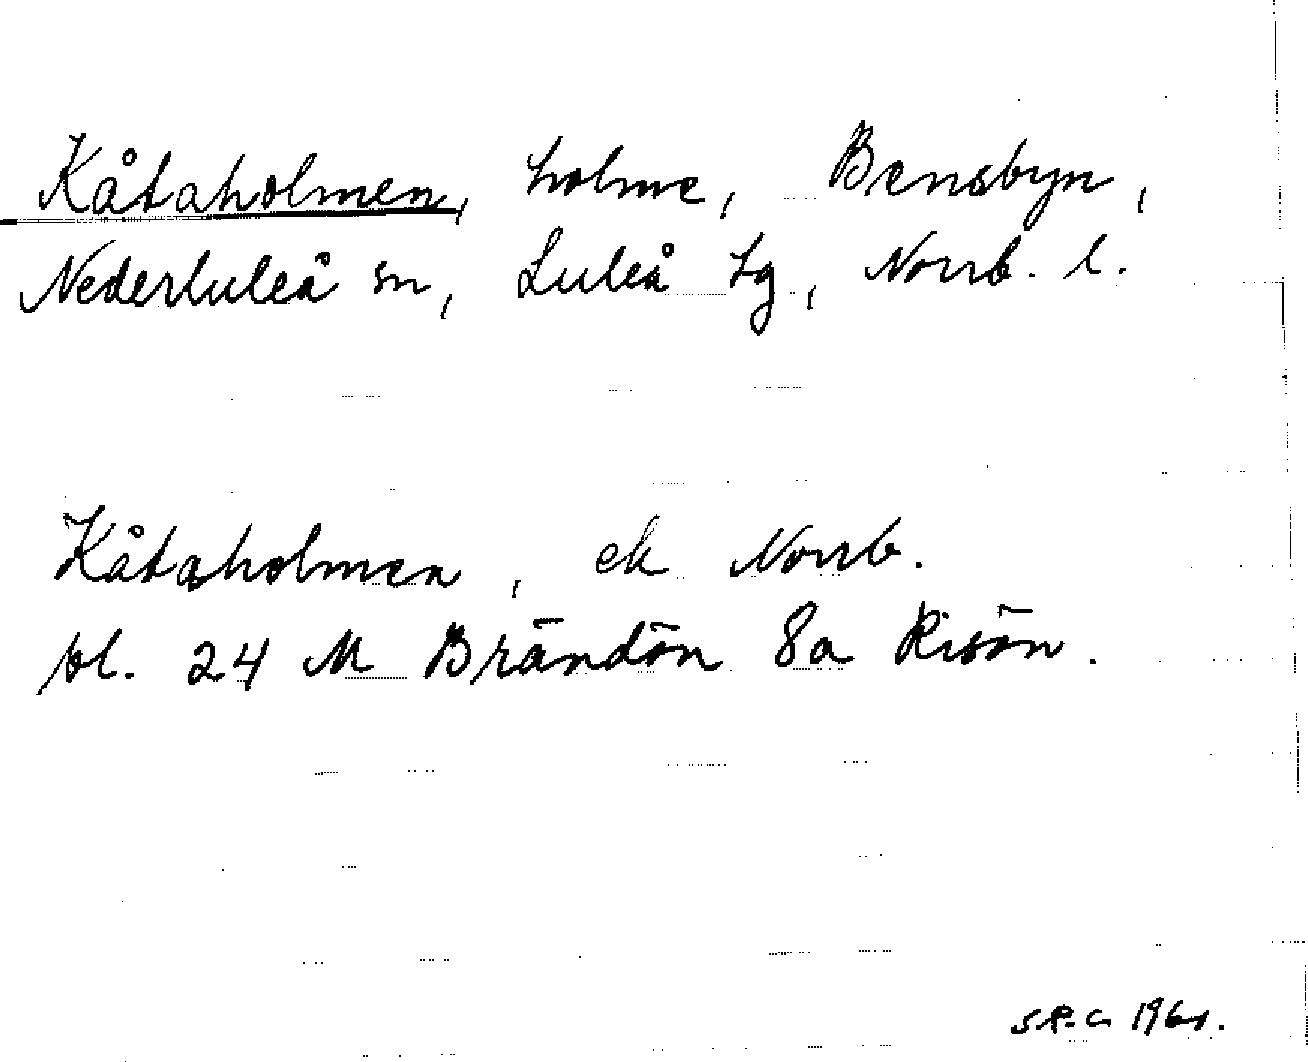 Kåtaholmen, holme, Bensbyn,
Nederluleå sn, Luleå tg, Norrb. l.
Kåtaholmen, ek Norrb.
bl. 24 M Brändön 8a Risön.
S.R-G 1961.